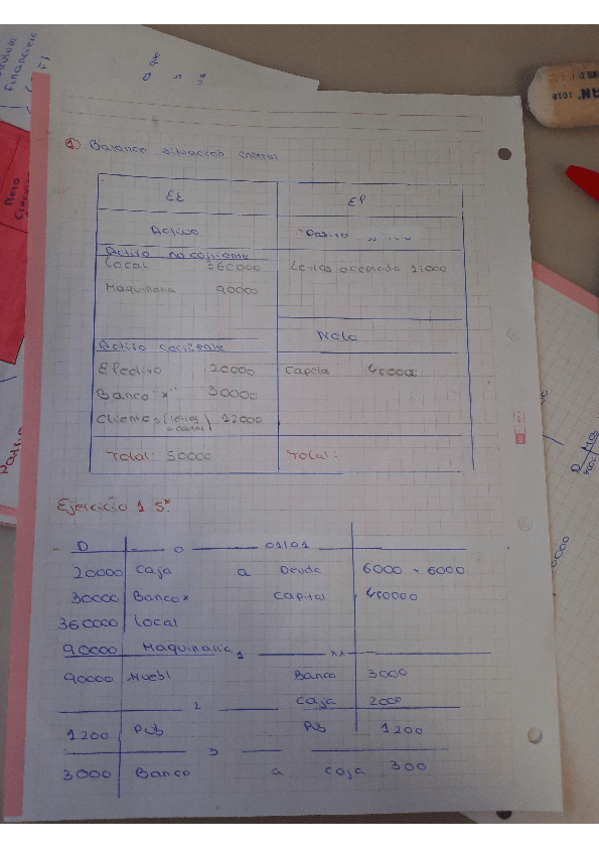 Financiero
① Balance situación inicial
EE EP
Activo Pasivo
Activo no corriente
Local 360000 Letras aceptada 12000
Maquinaria 90000
Neto
Activo corriente
Efectivo 20000 Capita
Banco "x" 30000
Clientes (letras a cobrar) 12000
Total: 50000 Total:
Ejercicio 1 5º
D 0 01/01
20000 Caja a Deuda 6000 + 6000
30000 Banco x Capital
360000 Local
90000 Maquinaria 1
90000 Muebl Banco 3000
2 Caja 2000
1200 Pub Pub 1200
3
3000 Banco a caja 300